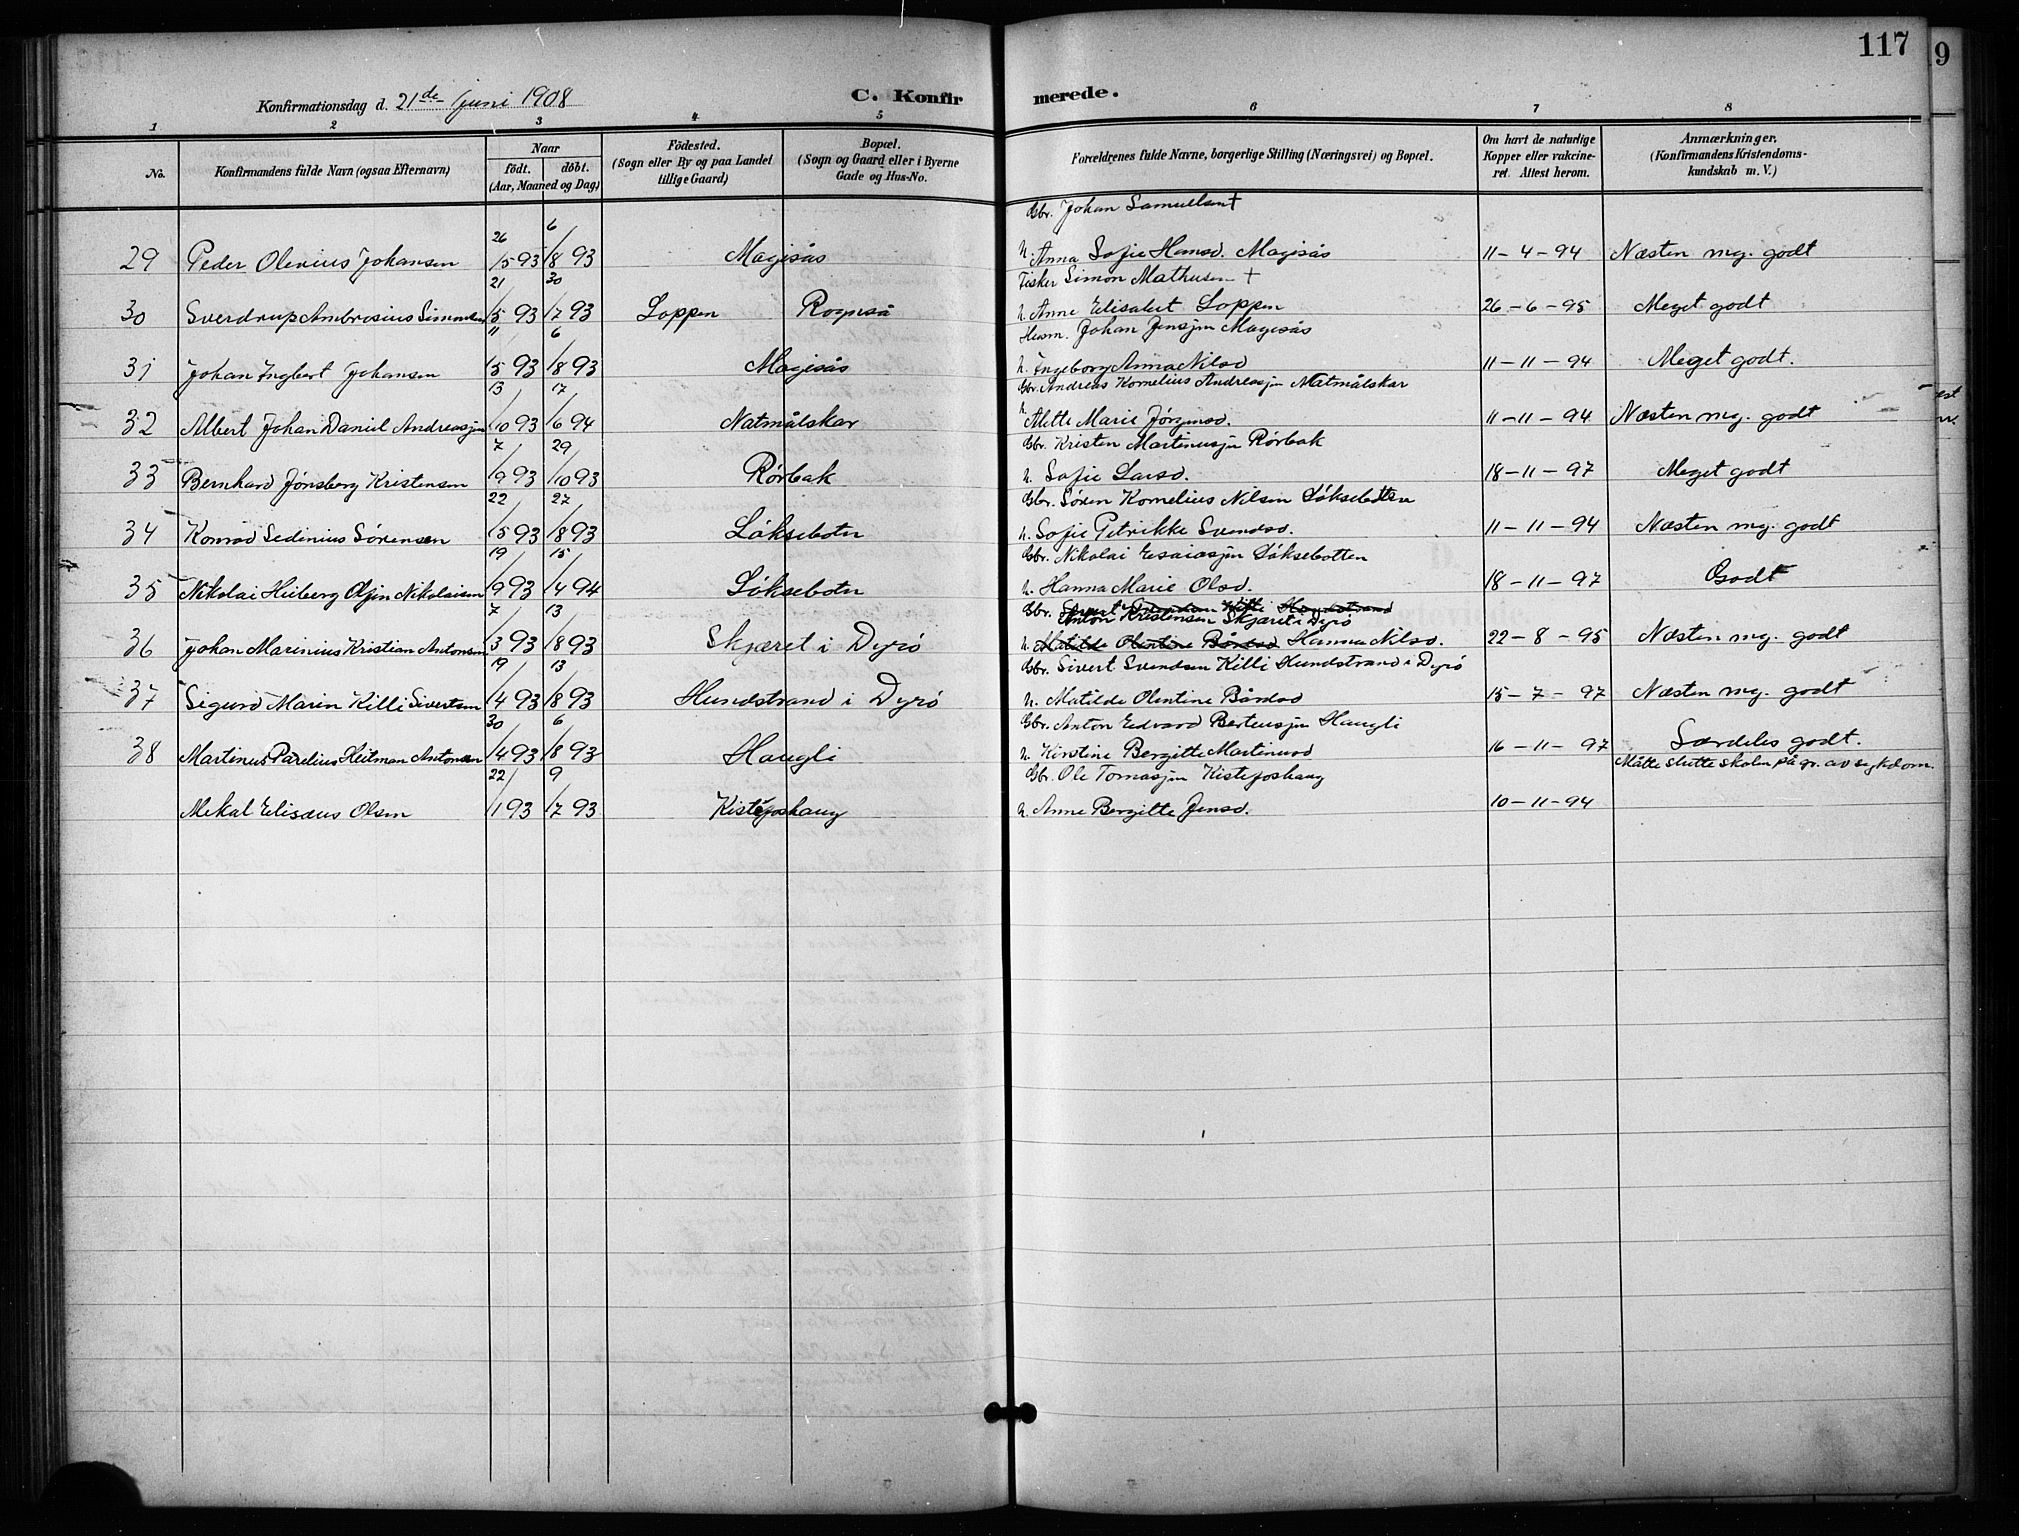 117
9
Konfirmationsdag d. 21de Juni 1908
C. Konfirmerede.
1 2 3 4 5 6 7 8
No.
Konfirmandens fulde Navn (ogsaa Efternavn)
Naar
födt. döbt.
(Aar, Maaned og Dag)
Födested.
(Sogn eller By og paa Landet
tillige Gaard)
Bopæl.
(Sogn og Gaard eller i Byerne
Gade og Hus-No.
Forældrenes fulde Navne, borgerlige Stilling (Næringsvei) og Bopæl.
Om havt de naturlige
Kopper eller vakcine-
ret. Attest herom.
Anmærkninger.
(Konfirmandens Kristendoms-
kundskab m. V.)
Gbr. Johan Samuelsen †
29 Peder Olerius Johansen 26/5 93 6/8 93 Magisås h. Anna Sofie Hansd. Magisås 11-4-94 Næsten mg. godt
Fisker Simon Mathusen †
30 Sverdrup Ambrosius Simonsen 21/5 93 30/7 93 Loppen Rognså h. Anne Elisabet Loppen 26-6-95 Meget godt
Husm. Johan Jensen Magisås
31 Johan Ingbert Johansen 11/5 93 6/8 93 Magisås h. Ingeborg Anna Nilsd 11-11-94 Meget godt.
Gbr. Andreas Kornelius Andreasjen Natmålskar
32 Albert Johan Daniel Andreasjen 13/10 93 17/6 94 Natmålskar h. Alette Marie Jørgensd. 11-11-94 Næsten mg. godt
Gbr. Kristen Martinusjen Rørbak
33 Bernhard Jønsberg Kristensen 7/9 93 29/10 93 Rørbak h. Sofie Larsd. 18-11-97 Meget godt
Gbr. Søren Kornelius Nilsen Løksebotten
34 Konrad Sedinius Sørensen 22/5 93 27/8 93 Løksebotn h. Sofie Petrikke Svendsd. 11-11-94 Næsten mg. godt
Gbr. Nikolai Esaiasjen Løksebotten
35 Nikolai Heiberg Oljen Nikolaisen 19/9 93 15/4 94 Løksebotn h. Hanna Marie Olsd. 18-11-97 Godt
Gbr. Sivert Svendsen Killi Hundstrand
Anton Kristensen Skjæret i Dyrö
36 Johan Marinius Kristian Antonsen 7/3 93 13/8 93 Skjæret i Dyrö h. Matilde Olentine Bårdsd Hanna Nilsd. 22-8-95 Næsten mg. godt
Gbr. Sivert Svendsen Killi Hundstrand i Dyrö
37 Sigurd Marin Killi Sivertsen 19/4 93 13/8 93 Hundstrand i Dyrö h. Matilde Olentine Bårdsd 15-7-97 Næsten mg. godt
Gbr. Anton Edvard Berteusjen Haugli
38 Martinus Parelius Heitman Antonsen 30/4 93 6/8 93 Haugli h. Kirstine Bergitte Martinusd 16-11-97 Særdeles godt.
Gbr. Ole Tomasjen Kistefoshaug Måtte slutte skolen på gr. av sygkdom.
Mekal Elisæus Olsen 22/1 93 9/7 93 Kistefoshaug h. Anne Bergitte Jensd. 10-11-94